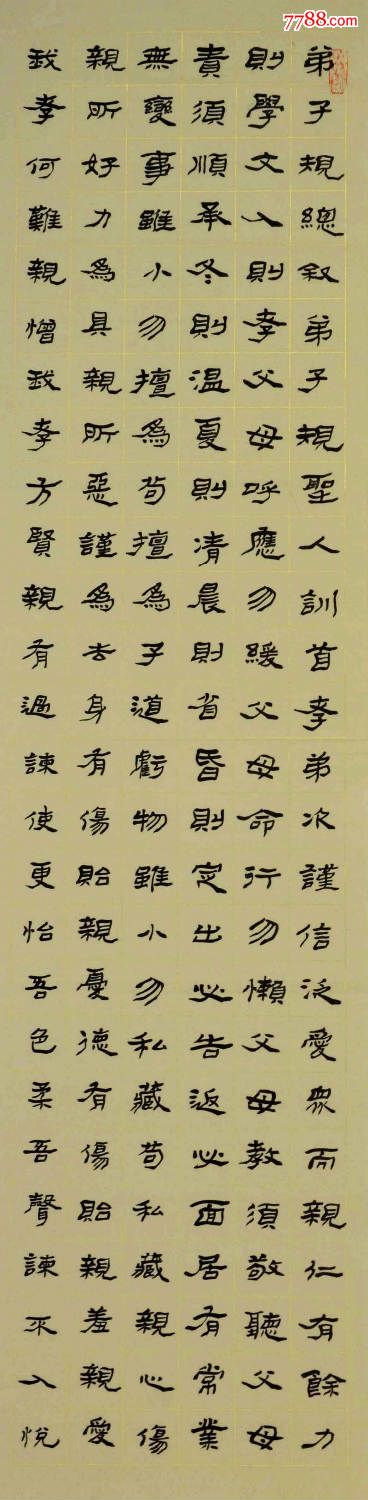 7788.com
弟子規總敘弟子規聖人訓首孝弟次謹信泛愛眾而親仁有餘力
則學文入則孝父母呼應勿緩父母命行勿懶父母教須敬聽父母
責須順承冬則温夏則凊晨則省昏則定出必告返必面居有常業
無變事雖小勿擅為茍擅為子道虧物雖小勿私藏茍私藏親心傷
親所好力為具親所惡謹為去身有傷貽親憂德有傷貽親羞親愛
我孝何難親憎我孝方賢親有過諫使更怡吾色柔吾聲諫不入悅